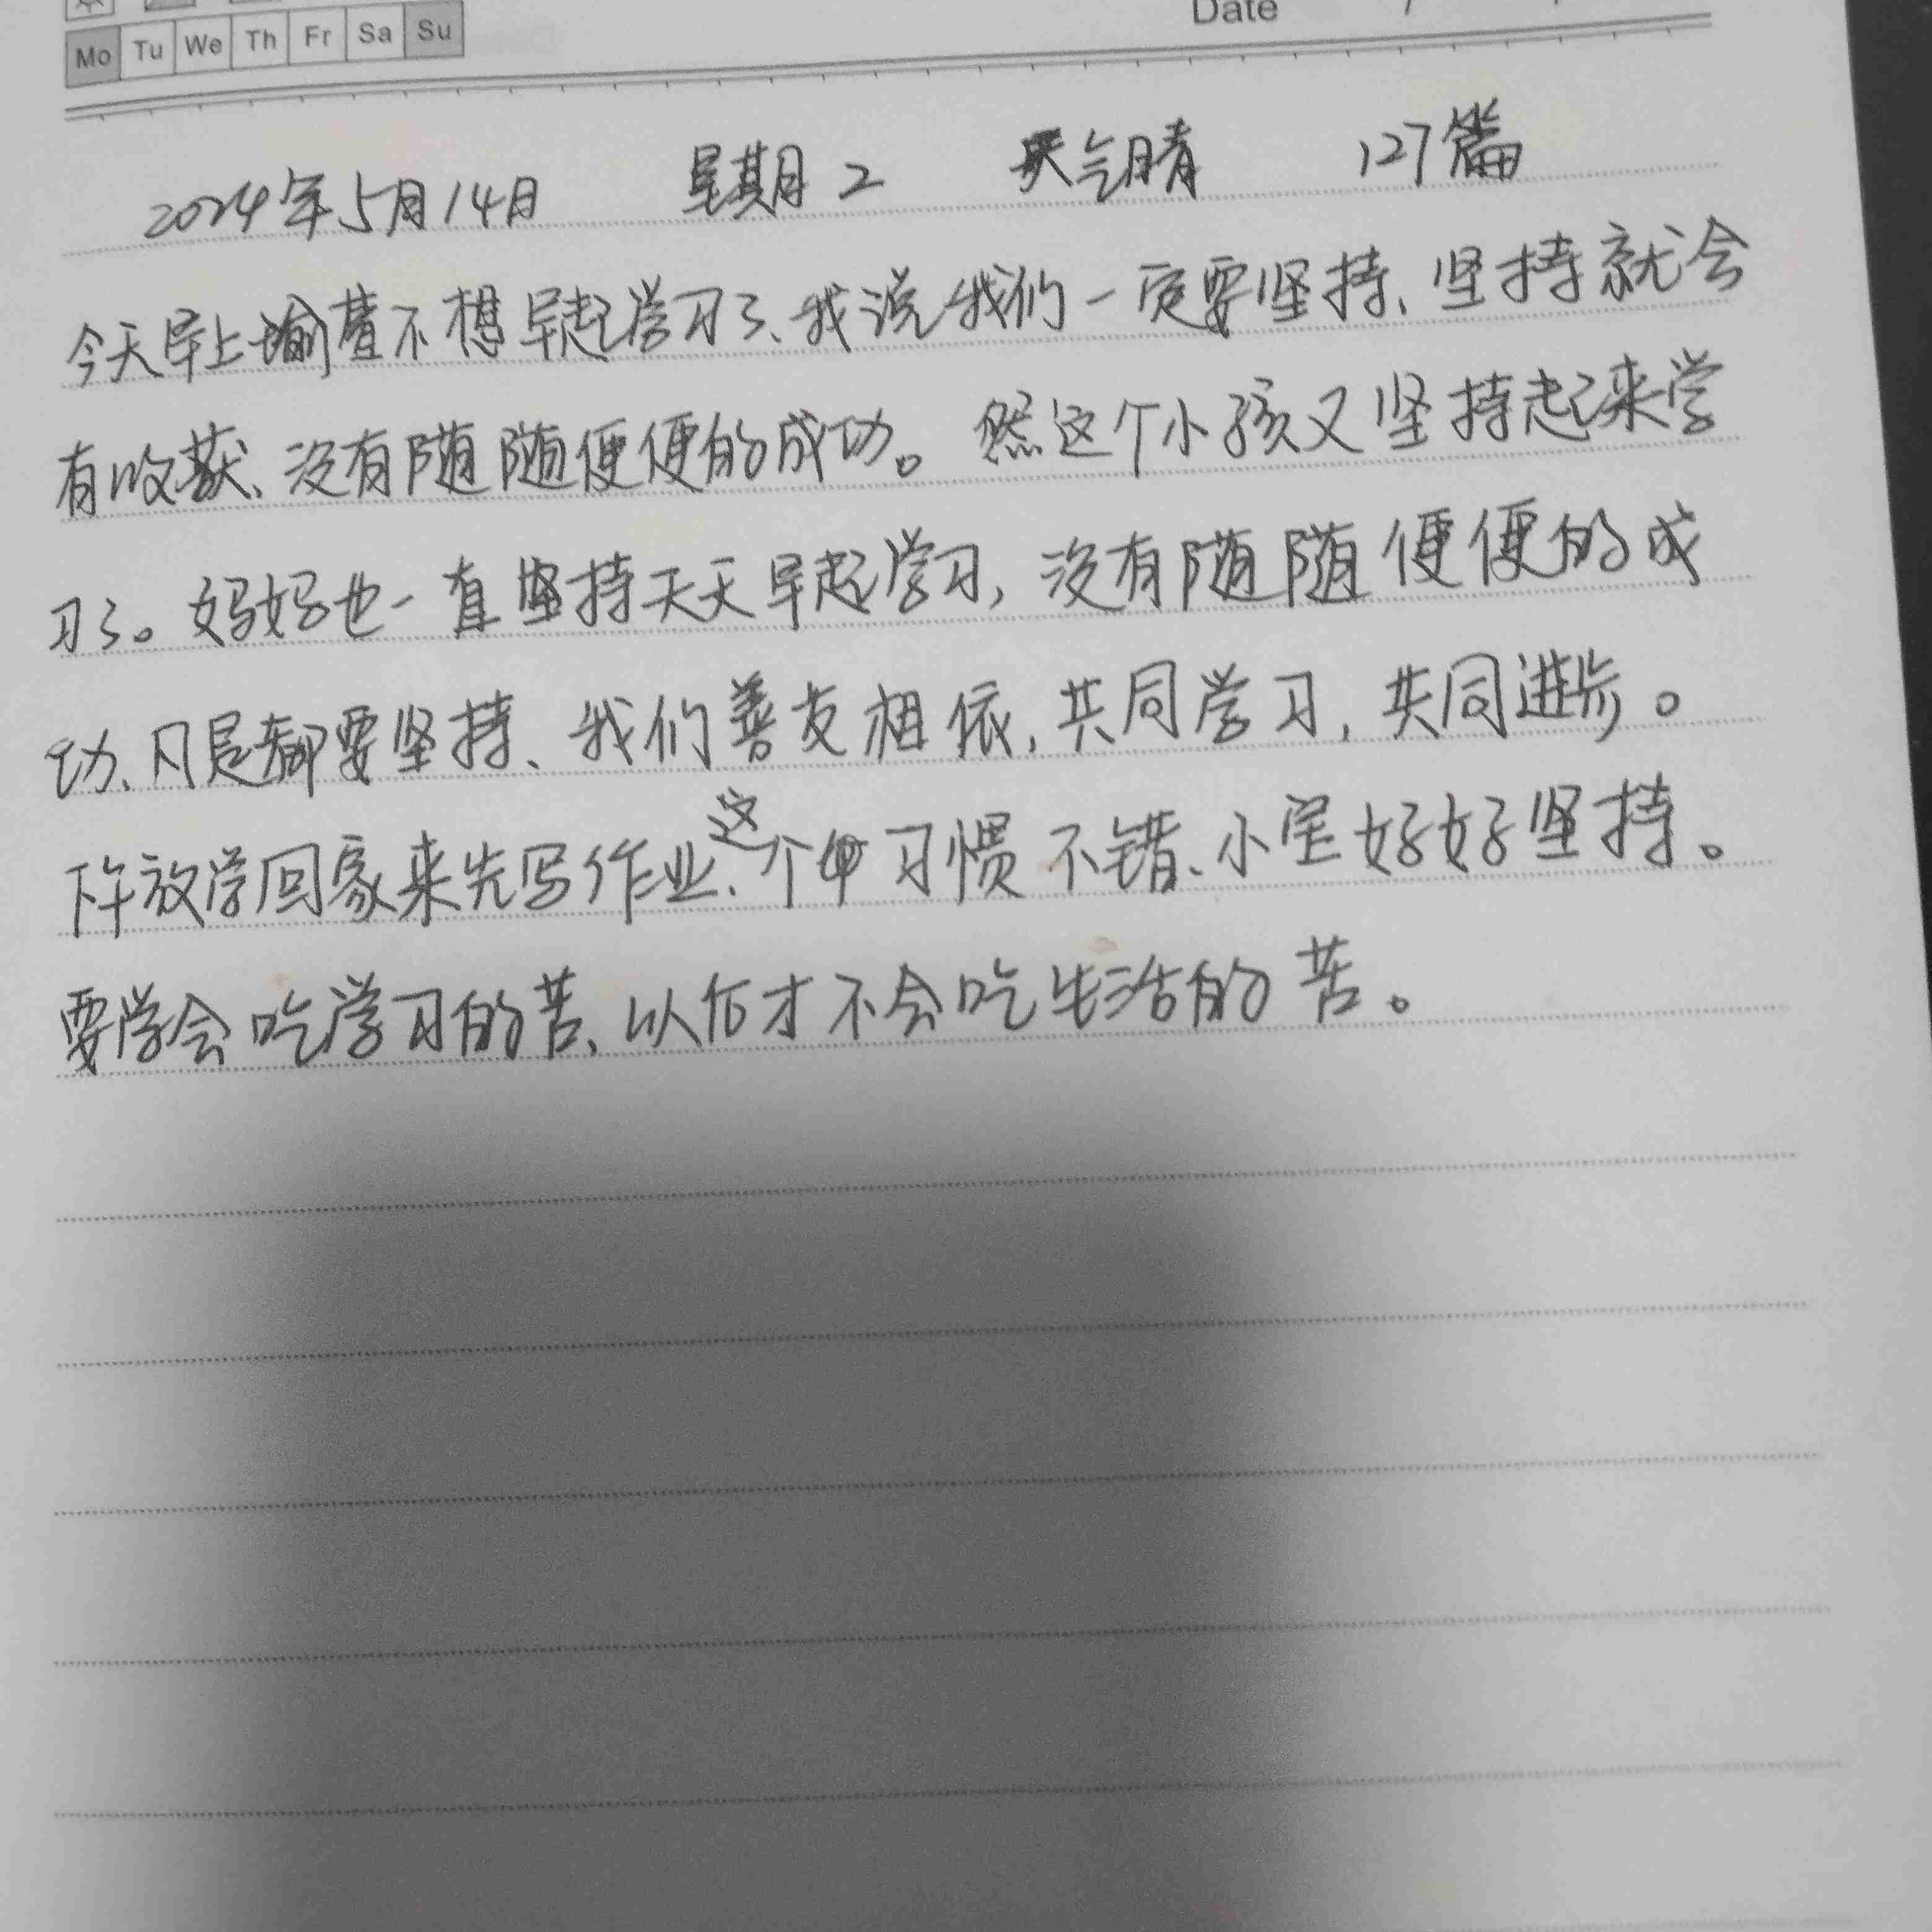 Date
Mo Tu We Th Fr Sa Su
2024年5月14日 星期2 天气晴 127篇
今天早上瑜萱不想早起学习了、我说我们一定要坚持、坚持就会
有收获、没有随随便便的成功。然这个小孩又坚持起来学
习了。妈妈也一直坚持天天早起学习,没有随随便便的成
功、凡是都要坚持、我们善友相依,共同学习,共同进步。
下午放学回家来先写作业、这个习惯不错、小宝好好坚持。
要学会吃学习的苦、以后才不会吃生活的苦。